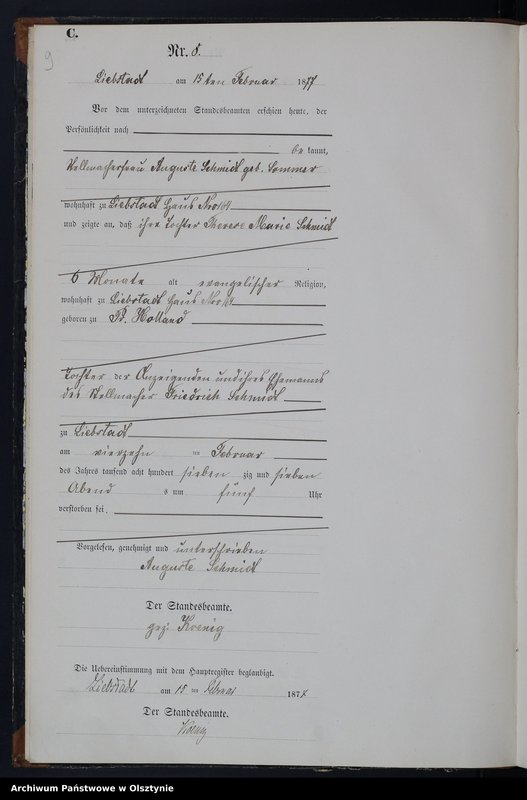 C.
9
Nr. 8.
Liebstadt am 15ten Februar 1877
Vor dem unterzeichneten Standesbeamten erschien heute, der
Persönlichkeit nach
be kannt,
Stellmacherfrau Auguste Schmidt geb. Sommer
wohnhaft zu Liebstadt Haus Nro 164
und zeigte an, daß ihre Tochter Therese Marie Schmidt
6 Monate alt evangelischer Religion,
wohnhaft zu Liebstadt Haus Nro 164
geboren zu Pr. Holland
Tochter der Anzeigenden und ihres Ehemanns
des Stellmacher Friedrich Schmidt
zu Liebstadt
am vierzehn ten Februar
des Jahres tausend acht hundert sieben zig und sieben
Abend s um fünf Uhr
verstorben sei.
Vorgelesen, genehmigt und unterschrieben
Auguste Schmidt
Der Standesbeamte.
gez: Koenig
Die Uebereinstimmung mit dem Hauptregister beglaubigt.
Liebstadt am 15 ten Februar 1877
Der Standesbeamte.
Koenig
Archiwum Państwowe w Olsztynie